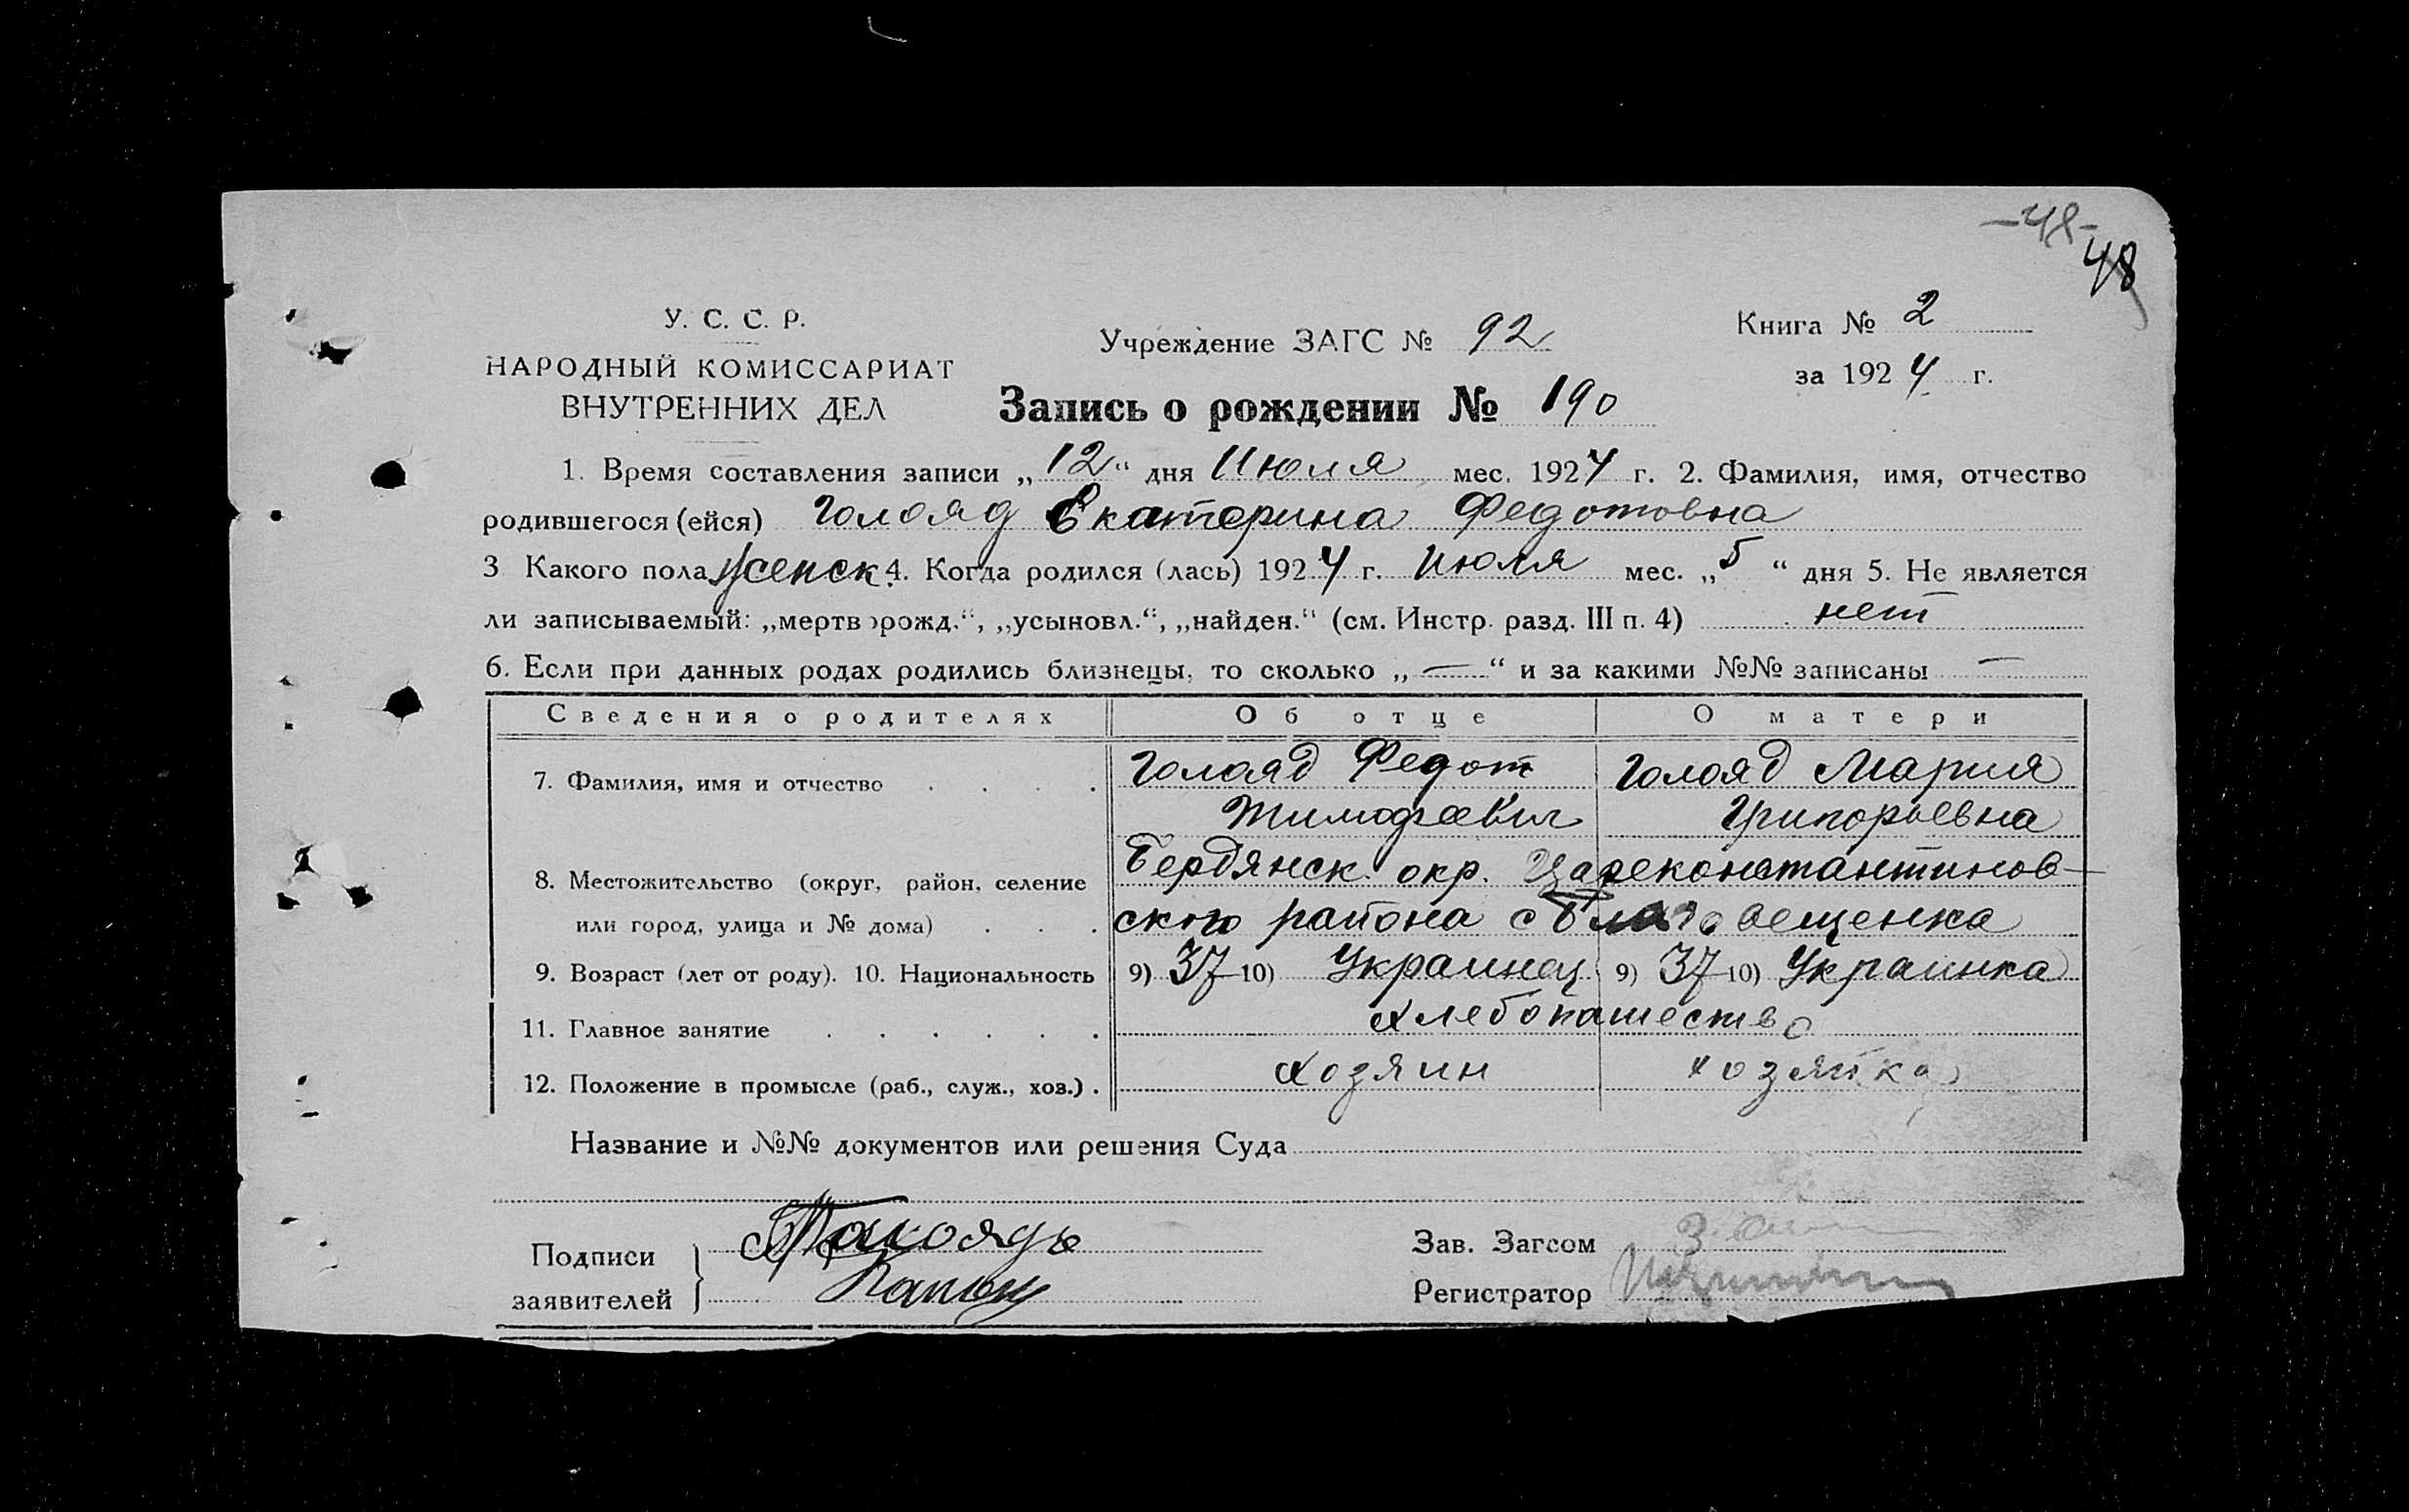 -48-
48
У. С. С. Р.
НАРОДНЫЙ КОМИССАРИАТ
ВНУТРЕННИХ ДЕЛ
Учреждение ЗАГС № 92
Книга № 2
за 1924 г.
Запись о рождении № 190
1. Время составления записи „12“ дня Июля мес. 1924 г. 2. Фамилия, имя, отчество
родившегося (ейся) Голояд Екатерина Федотовна
3 Какого пола женск. 4. Когда родился (лась) 1924 г. Июля мес. „5“ дня 5. Не является
ли записываемый: „мертворожд.“, „усыновл.“, „найден.“ (см. Инстр. разд. III п. 4) нет
6. Если при данных родах родились близнецы, то сколько „—“ и за какими №№ записаны —
Сведения о родителях Об отце О матери
7. Фамилия, имя и отчество . . . . Голояд Федот Голояд Мария
Тимофеевич Григорьевна
8. Местожительство (округ, район, селение Бердянск. окр. Цареконстантинов-
или город, улица и № дома) . . . ского района с Благовещенка
9. Возраст (лет от роду). 10. Национальность 9) 37 10) Украинец 9) 37 10) Украинка
11. Главное занятие . . . . . . Хлебопашество
12. Положение в промысле (раб., служ., хоз.) . Хозяин хозяйка
Название и №№ документов или решения Суда
Подписи
заявителей
Зав. Загсом
Регистратор